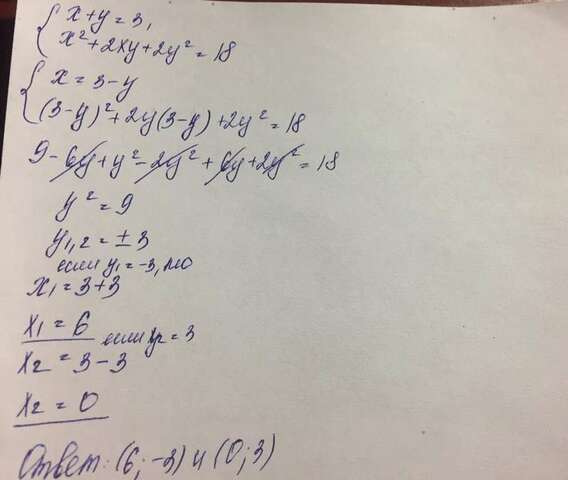 { x + y = 3,
x² + 2xy + 2y² = 18
{ x = 3 - y
(3-y)² + 2y(3-y) + 2y² = 18
9 - 6y + y² - 2y² + 6y + 2y² = 18
y² = 9
y₁,₂ = ± 3
если y₁ = -3, то
x₁ = 3+3
x₁ = 6 если y₂ = 3
x₂ = 3 - 3
x₂ = 0
Ответ: (6; -3) и (0; 3)